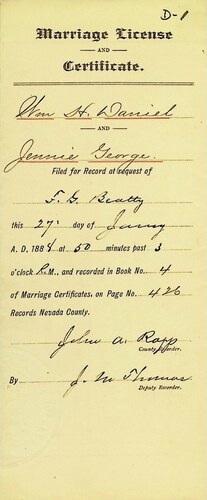 D-1
Marriage License
AND
Certificate.
Wm H. Daniel
AND
Jennie George.
Filed for Record at request of
F. G. Beatty
this 27' day of Jany
A. D. 1888 at 50 minutes past 3
o'clock P. M., and recorded in Book No. 4
of Marriage Certificates, on Page No. 426
Records Nevada County.
John A. Rapp
County Recorder.
By J. M Thomas
Deputy Recorder.